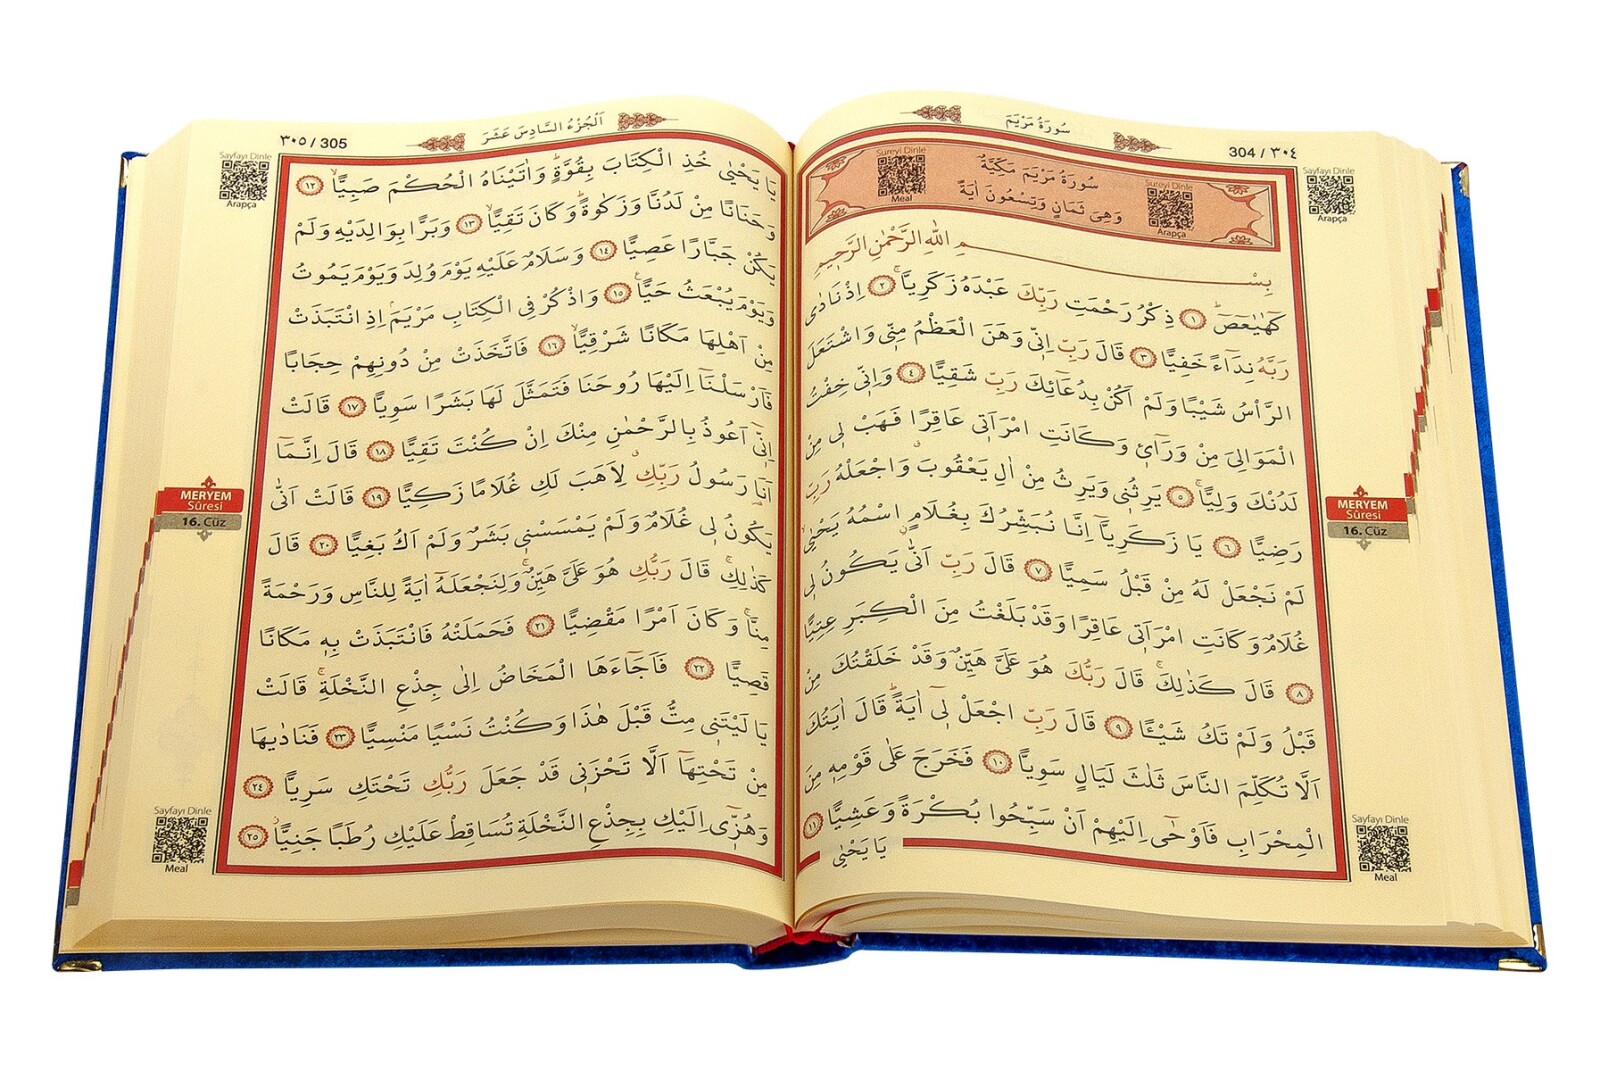 سُورَةُ مَرْيَمَ
304 / ٣٠٤
Sayfayı Dinle
Arapça
Sureyi Dinle
Meal
سُورَةُ مَرْيَمَ مَكِّيَّةٌ
وَهِىَ ثَمَانٍ وَتِسْعُونَ اٰيَةً
Sureyi Dinle
Arapça
بِسْمِ اللّٰهِ الرَّحْمٰنِ الرَّحٖيمِ
كٓهٰيٰعٓصٓ ﴿١﴾ ذِكْرُ رَحْمَتِ رَبِّكَ عَبْدَهُ زَكَرِيَّاۚ ﴿٢﴾ اِذْ نَادٰى
رَبَّهُ نِدَٓاءً خَفِيًّا ﴿٣﴾ قَالَ رَبِّ اِنّٖى وَهَنَ الْعَظْمُ مِنّٖى وَاشْتَعَلَ
الرَّاْسُ شَيْبًا وَلَمْ اَكُنْ بِدُعَٓائِكَ رَبِّ شَقِيًّا ﴿٤﴾ وَاِنّٖى خِفْتُ
الْمَوَالِىَ مِنْ وَرَٓائٖ وَكَانَتِ امْرَاَتٖى عَاقِرًا فَهَبْ لٖى مِنْ
لَدُنْكَ وَلِيًّاۙ ﴿٥﴾ يَرِثُنٖى وَيَرِثُ مِنْ اٰلِ يَعْقُوبَ وَاجْعَلْهُ رَبِّ
رَضِيًّا ﴿٦﴾ يَا زَكَرِيَّٓا اِنَّا نُبَشِّرُكَ بِغُلَامٍ اسْمُهُ يَحْيٰى
لَمْ نَجْعَلْ لَهُ مِنْ قَبْلُ سَمِيًّا ﴿٧﴾ قَالَ رَبِّ اَنّٰى يَكُونُ لٖى
غُلَامٌ وَكَانَتِ امْرَاَتٖى عَاقِرًا وَقَدْ بَلَغْتُ مِنَ الْكِبَرِ عِتِيًّا
﴿٨﴾ قَالَ كَذٰلِكَۚ قَالَ رَبُّكَ هُوَ عَلَىَّ هَيِّنٌ وَقَدْ خَلَقْتُكَ مِنْ
قَبْلُ وَلَمْ تَكُ شَيْـًٔا ﴿٩﴾ قَالَ رَبِّ اجْعَلْ لٖٓى اٰيَةًۜ قَالَ اٰيَتُكَ
اَلَّا تُكَلِّمَ النَّاسَ ثَلٰثَ لَيَالٍ سَوِيًّا ﴿١٠﴾ فَخَرَجَ عَلٰى قَوْمِهٖ مِنَ
الْمِحْرَابِ فَاَوْحٰٓى اِلَيْهِمْ اَنْ سَبِّحُوا بُكْرَةً وَعَشِيًّا ﴿١١﴾
يَا يَحْيٰى
MERYEM
Sûresi
16. Cüz
Sayfayı Dinle
Meal
٣٠٥ / 305
اَلْجُزْءُ السَّادِسَ عَشَرَ
Sayfayı Dinle
Arapça
يَا يَحْيٰى خُذِ الْكِتَابَ بِقُوَّةٍۜ وَاٰتَيْنَاهُ الْحُكْمَ صَبِيًّاۙ ﴿١٢﴾
وَحَنَانًا مِنْ لَدُنَّا وَزَكٰوةًۜ وَكَانَ تَقِيًّاۙ ﴿١٣﴾ وَبَرًّا بِوَالِدَيْهِ وَلَمْ
يَكُنْ جَبَّارًا عَصِيًّا ﴿١٤﴾ وَسَلَامٌ عَلَيْهِ يَوْمَ وُلِدَ وَيَوْمَ يَمُوتُ
وَيَوْمَ يُبْعَثُ حَيًّاۚ ﴿١٥﴾ وَاذْكُرْ فِى الْكِتَابِ مَرْيَمَۢ اِذِ انْتَبَذَتْ
مِنْ اَهْلِهَا مَكَانًا شَرْقِيًّاۙ ﴿١٦﴾ فَاتَّخَذَتْ مِنْ دُونِهِمْ حِجَابًا
فَاَرْسَلْنَٓا اِلَيْهَا رُوحَنَا فَتَمَثَّلَ لَهَا بَشَرًا سَوِيًّا ﴿١٧﴾ قَالَتْ
اِنّٖٓى اَعُوذُ بِالرَّحْمٰنِ مِنْكَ اِنْ كُنْتَ تَقِيًّا ﴿١٨﴾ قَالَ اِنَّمَٓا
اَنَا رَسُولُ رَبِّكِۗ لِاَهَبَ لَكِ غُلَامًا زَكِيًّا ﴿١٩﴾ قَالَتْ اَنّٰى
يَكُونُ لٖى غُلَامٌ وَلَمْ يَمْسَسْنٖى بَشَرٌ وَلَمْ اَكُ بَغِيًّا ﴿٢٠﴾ قَالَ
كَذٰلِكِۚ قَالَ رَبُّكِ هُوَ عَلَىَّ هَيِّنٌۚ وَلِنَجْعَلَهُٓ اٰيَةً لِلنَّاسِ وَرَحْمَةً
مِنَّاۚ وَكَانَ اَمْرًا مَقْضِيًّا ﴿٢١﴾ فَحَمَلَتْهُ فَانْتَبَذَتْ بِهٖ مَكَانًا
قَصِيًّا ﴿٢٢﴾ فَاَجَٓاءَهَا الْمَخَاضُ اِلٰى جِذْعِ النَّخْلَةِۚ قَالَتْ
يَا لَيْتَنٖى مِتُّ قَبْلَ هٰذَا وَكُنْتُ نَسْيًا مَنْسِيًّا ﴿٢٣﴾ فَنَادٰيهَا
مِنْ تَحْتِهَٓا اَلَّا تَحْزَنٖى قَدْ جَعَلَ رَبُّكِ تَحْتَكِ سَرِيًّا ﴿٢٤﴾
وَهُزّٖٓى اِلَيْكِ بِجِذْعِ النَّخْلَةِ تُسَاقِطْ عَلَيْكِ رُطَبًا جَنِيًّاۘ ﴿٢٥﴾
MERYEM
Sûresi
16. Cüz
Sayfayı Dinle
Meal